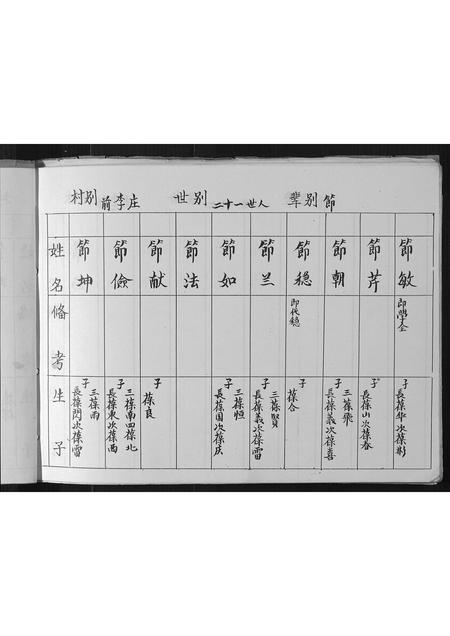 村别 前李庄 世别 二十一世人 辈别 節
姓名 節坤 節儉 節献 節法 節如 節兰 節穏 節朝 節芹 節敏
俻考 即代穏 即學全
生子
子 長葆閃 次葆雷 三葆雨
子 長葆東 次葆西 三葆南 四葆北
子 葆良
子 長葆国 次葆庆 三葆恒
子 長葆義 次葆雷 三葆賢
子 葆合
子 長葆義 次葆喜 三葆飛
子 長葆山 次葆春
子 長葆华 次葆彬